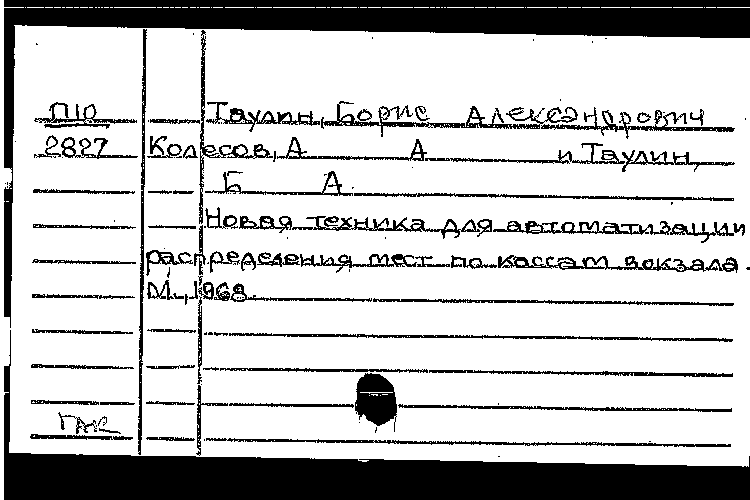 П10 Таулин, Борис Александрович
2827 Колесов, А А и Таулин,
Б А.
Новая техника для автоматизации
распределения мест по кассам вокзала.
М., 1968.